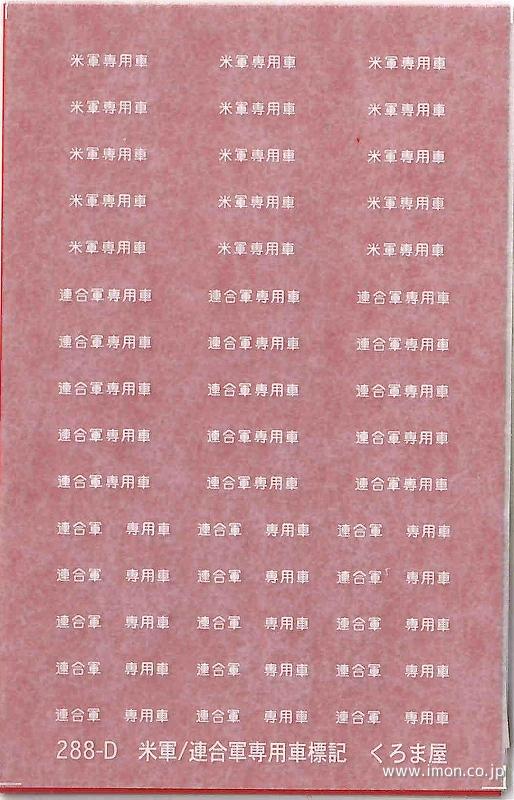 米軍専用車 米軍専用車 米軍専用車
米軍専用車 米軍専用車 米軍専用車
米軍専用車 米軍専用車 米軍専用車
米軍専用車 米軍専用車 米軍専用車
米軍専用車 米軍専用車 米軍専用車
連合軍専用車 連合軍専用車 連合軍専用車
連合軍専用車 連合軍専用車 連合軍専用車
連合軍専用車 連合軍専用車 連合軍専用車
連合軍専用車 連合軍専用車 連合軍専用車
連合軍専用車 連合軍専用車 連合軍専用車
連合軍 専用車 連合軍 専用車 連合軍 専用車
連合軍 専用車 連合軍 専用車 連合軍 専用車
連合軍 専用車 連合軍 専用車 連合軍 専用車
連合軍 専用車 連合軍 専用車 連合軍 専用車
連合軍 専用車 連合軍 専用車 連合軍 専用車
288-D 米軍/連合軍専用車標記 くろま屋
www.imon.co.jp